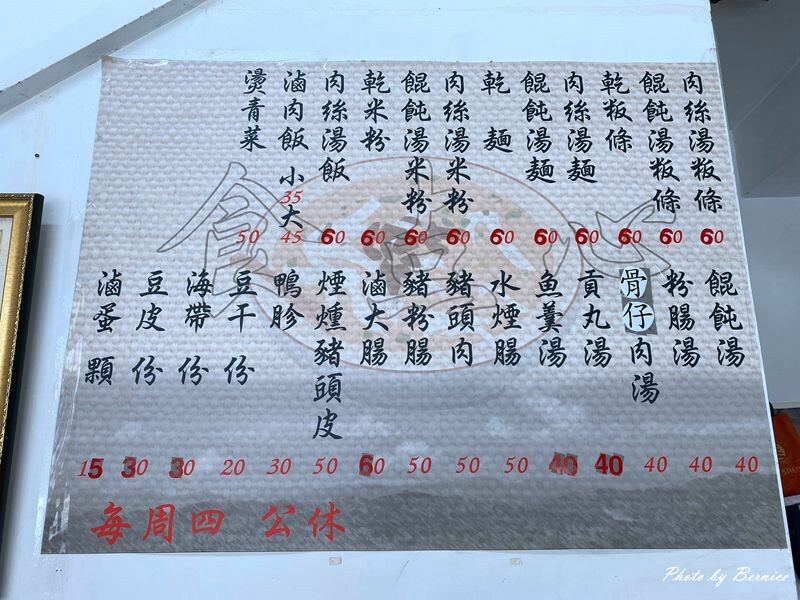 肉絲湯粄條 60
餛飩湯粄條 60
乾粄條 60
肉絲湯麵 60
餛飩湯麵 60
乾麵 60
肉絲湯米粉 60
餛飩湯米粉 60
乾米粉 60
肉絲湯飯 60
滷肉飯 小35 大45
燙青菜 50
餛飩湯 40
粉腸湯 40
骨仔肉湯 40
貢丸湯 40
魚羹湯 40
水煙腸 50
豬頭肉 50
豬粉腸 50
滷大腸 60
煙燻豬頭皮 50
鴨胗 30
豆干 份 20
海帶 份 30
豆皮 份 30
滷蛋 顆 15
每周四 公休
Photo by Bernice